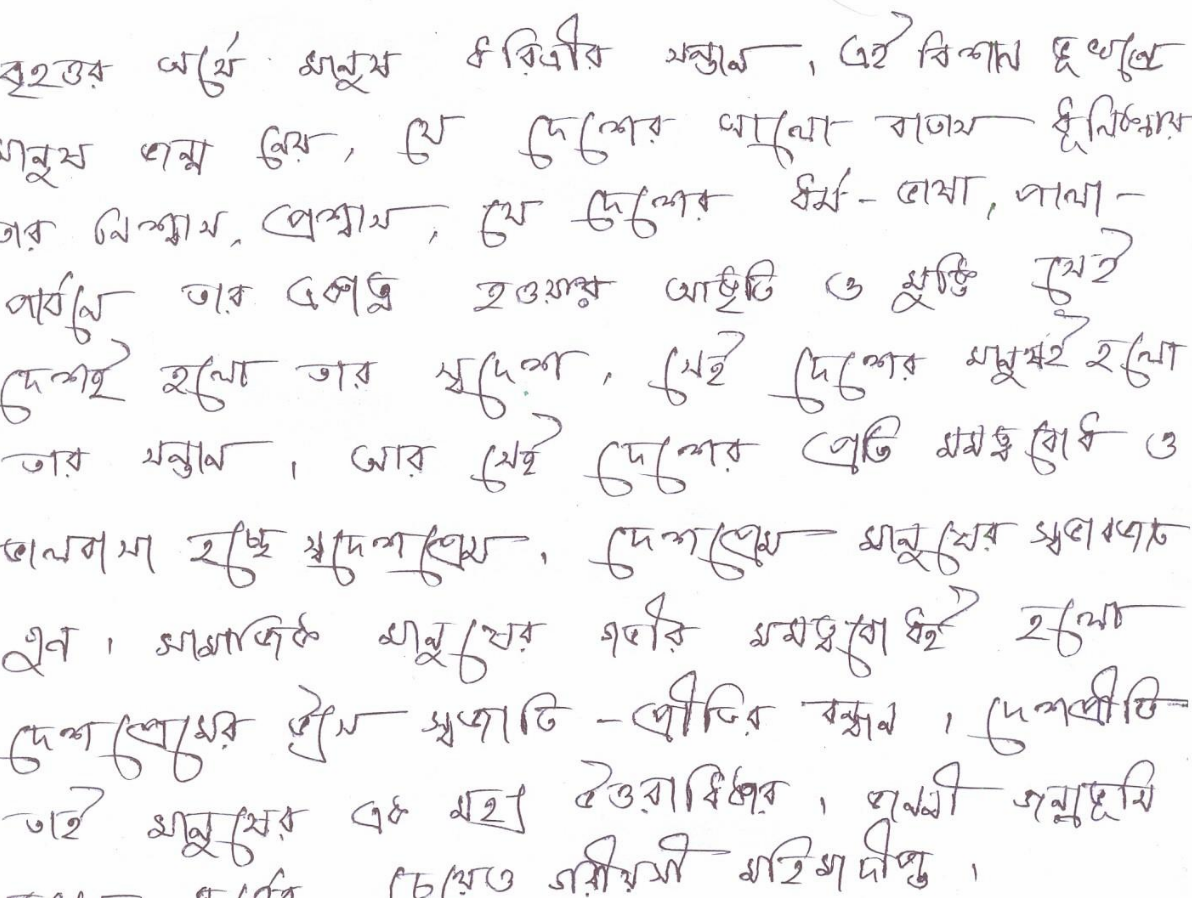 বৃহত্তর অর্থে মানুষ ধরিত্রীর সন্তান, এই বিশাল ভূখন্ডে
মানুষ জন্ম নেয়, যে দেশের আলো বাতাস ধূলিকনায়
তার নিশ্বাস, প্রশ্বাস, যে দেশের ধর্ম-ভাষা, পালা-
পার্বনে তার একাত্ম হওয়ার আকুতি ও মুক্তি সেই
দেশই হলো তার স্বদেশ, সেই দেশের মানুষই হলো
তার সন্তান। আর সেই দেশের প্রতি মমত্ববোধ ও
ভালবাসা হচ্ছে স্বদেশপ্রেম, দেশপ্রেম মানুষের স্বভাবজাত
গুন। সামাজিক মানুষের গভীর মমত্ববোধই হলো
দেশপ্রেমের উৎস স্বজাতি-প্রীতির বন্ধন। দেশপ্রীতি
তাই মানুষের এক মহৎ উত্তরাধিকার, জননী জন্মভূমি
চেয়েও গরীয়সী মহিমাদীপ্ত।